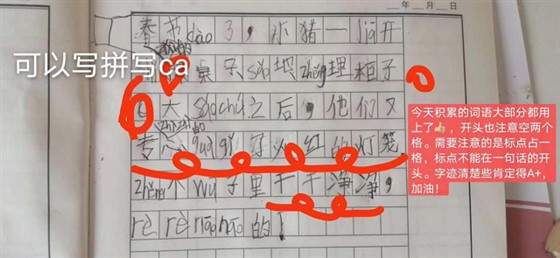 年 月 日
春节dào了，小猪一jiā开
可以写拼写ca
桌子sǎo地zhěng理柜子
大sǎochú之后，他们又
专心guà好火红的灯笼
zhěng个wū子里干干净净，
rè rè nāo nāo的！
今天积累的词语大部分都用
上了👍，开头也注意空两个
格。需要注意的是标点占一
格，标点不能在一句话的开
头。字迹清楚些肯定得A+，
加油！